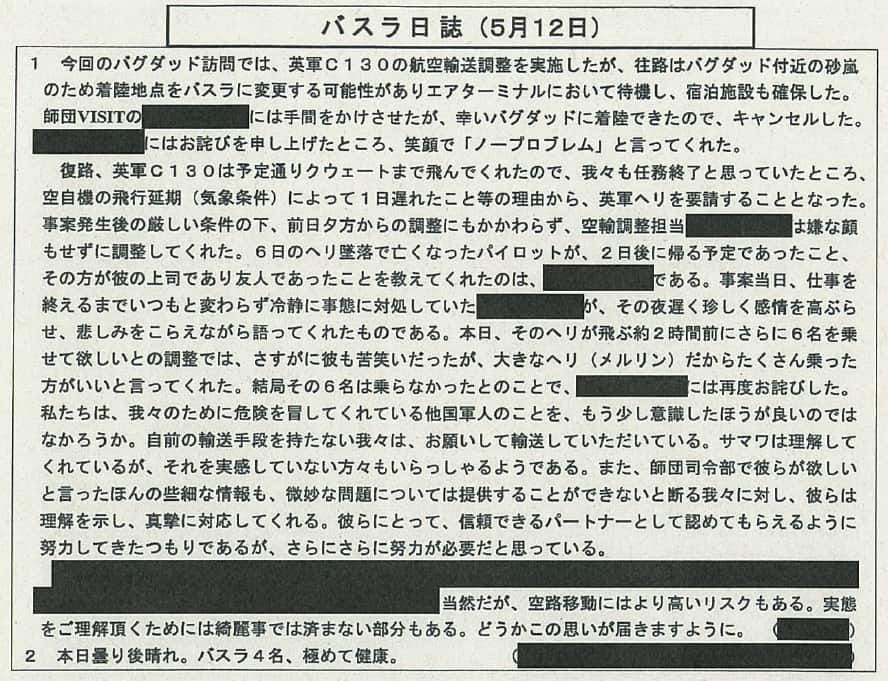 バスラ日誌（5月12日）
1　今回のバグダッド訪問では、英軍C130の航空輸送調整を実施したが、往路はバグダッド付近の砂嵐
のため着陸地点をバスラに変更する可能性がありエアターミナルにおいて待機し、宿泊施設も確保した。
師団VISITの　　　　には手間をかけさせたが、幸いバグダッドに着陸できたので、キャンセルした。
にはお詫びを申し上げたところ、笑顔で「ノープロブレム」と言ってくれた。
復路、英軍C130は予定通りクウェートまで飛んでくれたので、我々も任務終了と思っていたところ、
空自機の飛行延期（気象条件）によって1日遅れたこと等の理由から、英軍ヘリを要請することとなった。
事案発生後の厳しい条件の下、前日夕方からの調整にもかかわらず、空輸調整担当　　　　は嫌な顔
もせずに調整してくれた。6日のヘリ墜落で亡くなったパイロットが、2日後に帰る予定であったこと、
その方が彼の上司であり友人であったことを教えてくれたのは、　　　　である。事案当日、仕事を
終えるまでいつもと変わらず冷静に事態に対処していた　　　　が、その夜遅く珍しく感情を高ぶら
せ、悲しみをこらえながら語ってくれたものである。本日、そのヘリが飛ぶ約2時間前にさらに6名を乗
せて欲しいとの調整では、さすがに彼も苦笑いだったが、大きなヘリ（メルリン）だからたくさん乗った
方がいいと言ってくれた。結局その6名は乗らなかったとのことで、　　　　には再度お詫びした。
私たちは、我々のために危険を冒してくれている他国軍人のことを、もう少し意識したほうが良いのでは
なかろうか。自前の輸送手段を持たない我々は、お願いして輸送していただいている。サマワは理解して
くれているが、それを実感していない方々もいらっしゃるようである。また、師団司令部で彼らが欲しい
と言ったほんの些細な情報も、微妙な問題については提供することができないと断る我々に対し、彼らは
理解を示し、真摯に対応してくれる。彼らにとって、信頼できるパートナーとして認めてもらえるように
努力してきたつもりであるが、さらにさらに努力が必要だと思っている。
当然だが、空路移動にはより高いリスクもある。実態
をご理解頂くためには綺麗事では済まない部分もある。どうかこの思いが届きますように。（　　　　）
2　本日曇り後晴れ。バスラ4名、極めて健康。（　　　　）